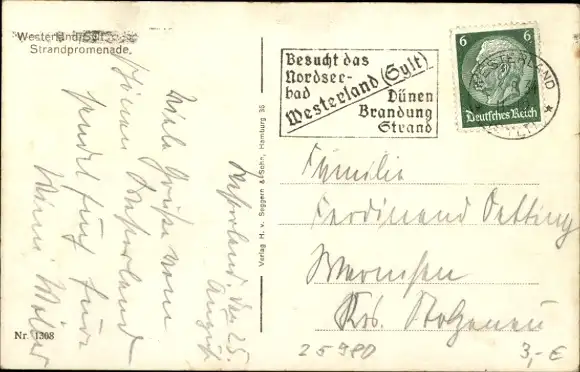 Westerland/Sylt
Strandpromenade.
Besucht das
Nordsee-
bad
Westerland (Sylt)
Dünen
Brandung
Strand
6 6
Deutsches Reich
WESTERLAND
Verlag H. v. Seggern & Sohn, Hamburg 36
Westerland, den 25.
August
Viele Grüße vom
schönen Westerland
sendet Euch
Familie
Ferdinand Oetting
Krs. Stolzenau
Nr. 1308
25980
3,- €